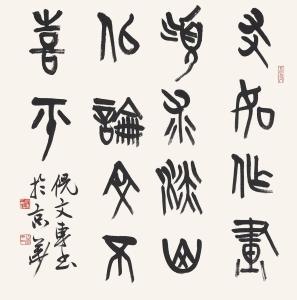 友如作畫
須求淡山
似論文不
喜平
倪文東書
於京華